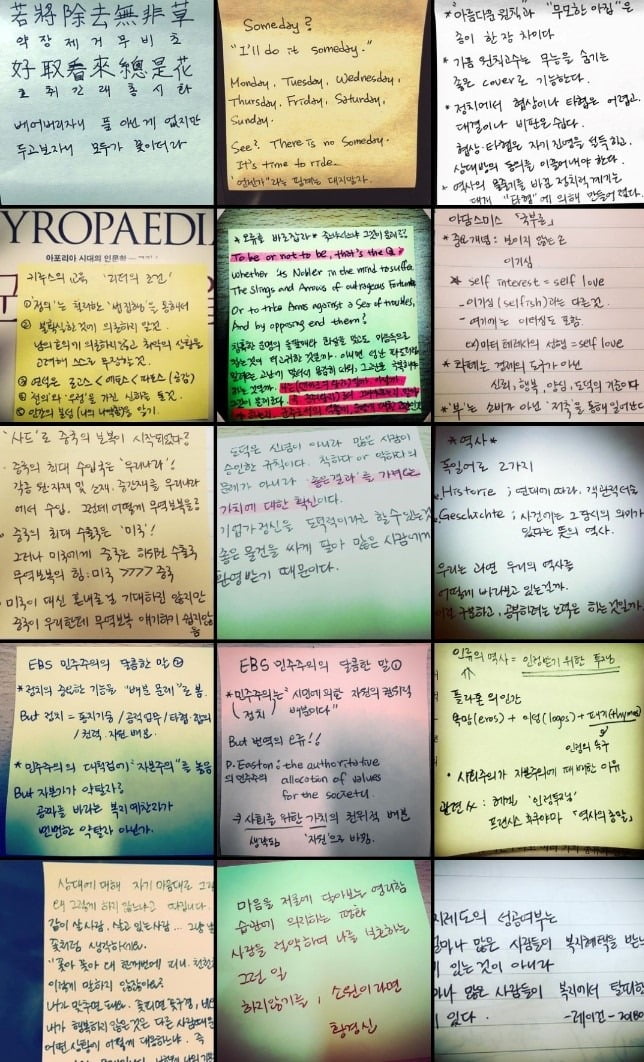 若將除去無非草
약 장 제 거 무 비 초
好取看來總是花
호 취 간 래 총 시 화
베어버리자니 풀 아닌게 없지만
두고보자니 모두가 꽃이더라
Someday?
"I'll do it someday."
Monday, Tuesday, Wednesday,
Thursday, Friday, Saturday,
Sunday.
See? There is no Someday.
It's time to ride.
'언젠가'라는 핑계는 대지말자.
*아름다운 원칙과 "무모한 아집"은
종이 한 장 차이다.
* 가끔 원칙고수는 무능을 숨기는
좋은 cover로 기능한다.
* 정치에서 협상이나 타협은 어렵고
대결이나 비판은 쉽다.
협상·타협은 자기 진영을 설득하고,
상대방의 동의를 이끌어내야 한다.
* 역사의 물줄기를 바꾼 정치적 계기는
대개 "타협"에 의해 만들어졌다.
YROPAEDIA
아포리아 시대의 인문학
키루스의 교육 '리더의 조건'
① '정의'는 철저한 '법집행'을 통해서
② 불확실한 것에 의존하지 말것.
③ 연덕은 로고스<에토스<파토스(공감)
* 오늘을 바로잡자 * 죽느냐 사느냐 그것이 문제로다?
To be or not to be, that's the Q;
whether 'tis Nobler in the mind to suffer
The Slings and Arrows of outrageous Fortune
Or to take Arms against a Sea of troubles,
And by opposing end them?
아담스미스 「국부론」
* 중요개념 : 보이지 않는 손
이기심
* self interest = self love
- 이기심(selfish)과는 다른것.
- 여기에는 이타심도 포함.
ex) 마더 테레사의 선행 = self love
* 화폐는 경제의 도구가 아닌
신뢰, 행복, 양심, 도덕의 거울이다
* '부'는 소비가 아닌 '저축'을 통해 일어난다
'사드'로 중국의 보복이 시작되었다?
· 중국의 최대 수입국은 '우리나라'!
각종 원·자재 및 소재, 중간재를 우리나라
에서 수입. 그런데 어떻게 무역보복을?
· 중국의 최대 수출국은 '미국'!
그러나 미국에게 중국은 하위권 수출국
무역보복의 힘 : 미국 >>>> 중국
· 미국이 대신 혼내줄걸 기대하진 않지만
중국이 우리한테 무역보복 얘기하기 쉽지않을
듯
도덕은 신념이 아니라 많은 사람이
승인한 규칙이다. 착하다 or 악하다의
문제가 아니라 '좋은결과'를 가져오는
가치에 대한 확신이다.
기업가정신을 도덕적이라고 할 수 있는것은
좋은 물건을 싸게 팔아 많은 사람에게
환영받기 때문이다.
*역사*
독일어로 2가지
Historie ; 연대에 따라. 객관적서술
Geschichte ; 사건에는 그 당시의 의미가
있다는 뜻의 역사.
우리는 과연 우리의 역사를
어떻게 바라보고 있는건가.
구분하고, 공부하려는 노력은 하는것일까.
EBS 민주주의의 달콤한 말 ②
*정치의 중요한 기능을 "배분 문제"로 봄.
But 정치 = 통치기능 / 공적업무 / 타협·합의
/ 권력·자원 배분.
* 민주주의의 대척점에 "자본주의"를 놓음
But 자본가가 약탈자?
공짜를 바라는 복지예찬자가
뻔뻔한 약탈자 아닌가.
EBS 민주주의의 달콤한 말 ①
*민주주의는 "시민에 의한 자원의 권위적
(정치) 배분이다"
But 번역의 오류!!
D. Easton ; the authoritative
의 민주주의 allocation of values
for the society.
→ 사회를 위한 가치의 권위적 배분
생략됨 '자원'으로 바뀜.
인류의 역사 = 인정받기 위한 투쟁
플라톤의 인간
욕망(eros) + 이성(logos) + 패기(thymos)
인정의 욕구
· 사회주의가 자본주의에 패배한 이유
관련 서 : 헤겔 '인정투쟁'
프랜시스 후쿠야마 「역사의 종말」
상대에 대해 자기 마음대로 그리고
왜 그렇게 하지 않느냐고 따집니다.
같이 살 사람, 살고 있는 사람 … 그냥 날씨나
꽃처럼 생각하세요.
"꽃아 꽃아 왜 한꺼번에 피니, 천천히
이렇게 말하지 않잖아요?
내가 맞추면 돼요. 꽃피면 꽃구경,
내가 행복하지 않은 것은 다른 사람때문
어떤 상황에 어떻게 대응하느냐. 즉
마음을 저울에 달아보는 영리함
습관에 의지하는 평화
사람을 절약하며 나를 보호하는
그런 일
하지않기를, 소원이라면
황경신
지제도의 성공여부는
얼마나 많은 사람들이 복지혜택을 받는
있는 것이 아니라
마나 많은 사람들이 복지에서 탈피한
있다.
-레이건-